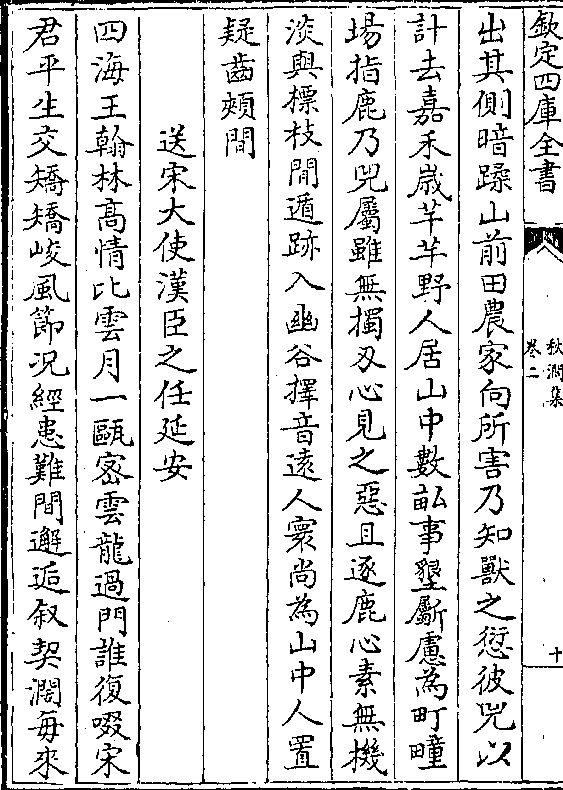 欽定四庫全書
秋澗集
卷二
十
出其側暗蹂山前田農家向所害乃知獸之愆彼兕以
計去嘉禾嵗芊芊野人居山中數畝事墾斸慮為町疃
場指鹿乃兕屬雖無擉刄心見之惡且逐鹿心素無機
淡與標枝間遁跡入幽谷擇音逺人寰尚為山中人置
疑齒頰間
送宋大使漢臣之任延安
四海王翰林髙情比雲月一甌宻雲龍過門誰復啜宋
君平生交矯矯峻風節況經患難間邂逅叙契濶毎來